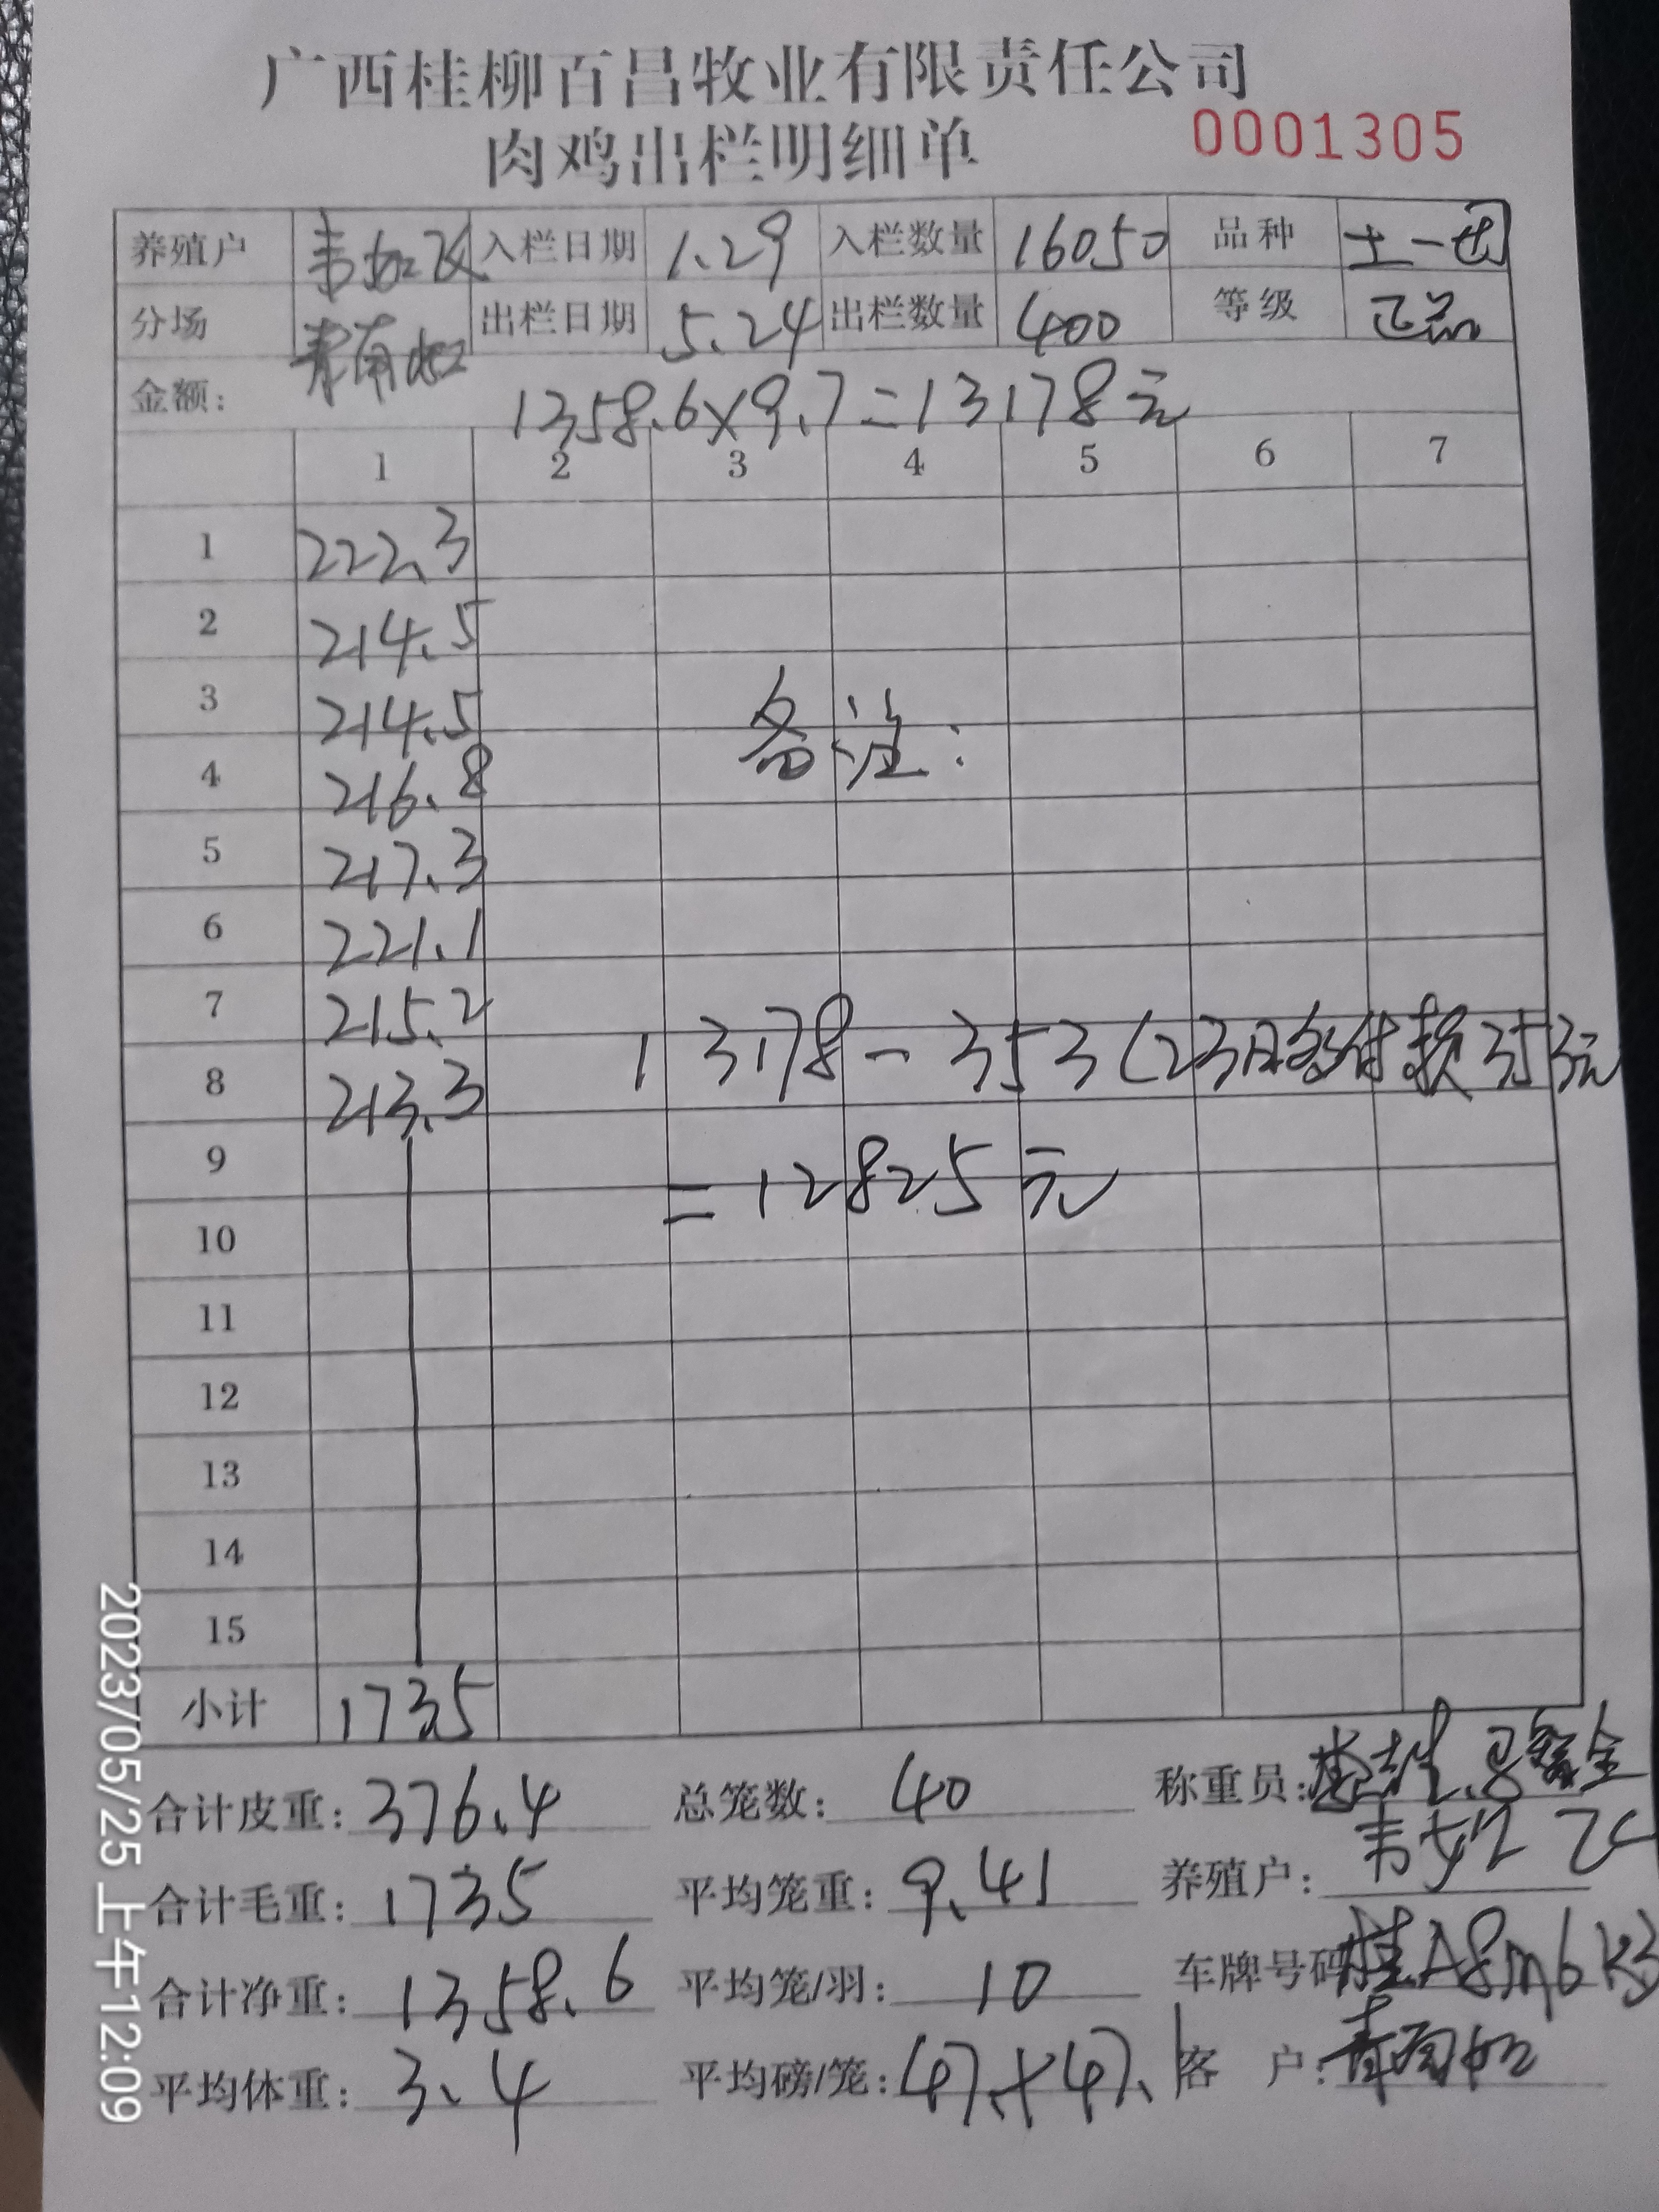 广西桂柳百昌牧业有限责任公司
肉鸡出栏明细单 0001305
养殖户 韦如飞 入栏日期 1.29 入栏数量 16050 品种 土一
分场 出栏日期 5.24 出栏数量 400 等级 正品
金额: 1358.6×9.7=13178元
1 2 3 4 5 6 7
1 222.3
2 214.5
3 214.5
备注:
4 216.8
5 217.3
6 221.1
7 215.2
13178-353(23日多付款353元
8 213.3
9
=12825元
10
11
12
13
14
15
小计 1735
合计皮重: 376.4 总笼数: 40 称重员:
合计毛重: 1735 平均笼重: 9.41 养殖户: 韦如飞
合计净重: 1358.6 平均笼/羽: 10 车牌号码 桂A8m6K3
平均体重: 3.4 平均磅/笼: 47.+47.1 客 户:
2023/05/25 上午12:09